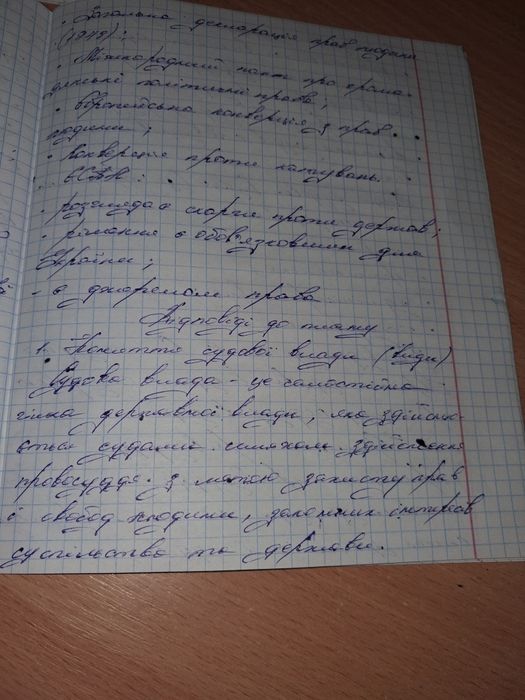 • Загальна декларація прав людини
(1948);
• Міжнародний пакт про грома-
дянські політичні права;
• Європейська конвенція з прав
людини;
• Конвенція проти катувань.
ЄСПЛ:
• розглядає скарги проти держав;
• рішення є обов'язковими для
України;
- є джерелом права.
Відповіді до плану
1. Поняття судової влади (види)
Судова влада - це самостійна
гілка державної влади, яка здійсню-
ється судами шляхом здійснення
правосуддя з метою захисту прав
і свобод людини, законних інтересів
суспільства та держави.